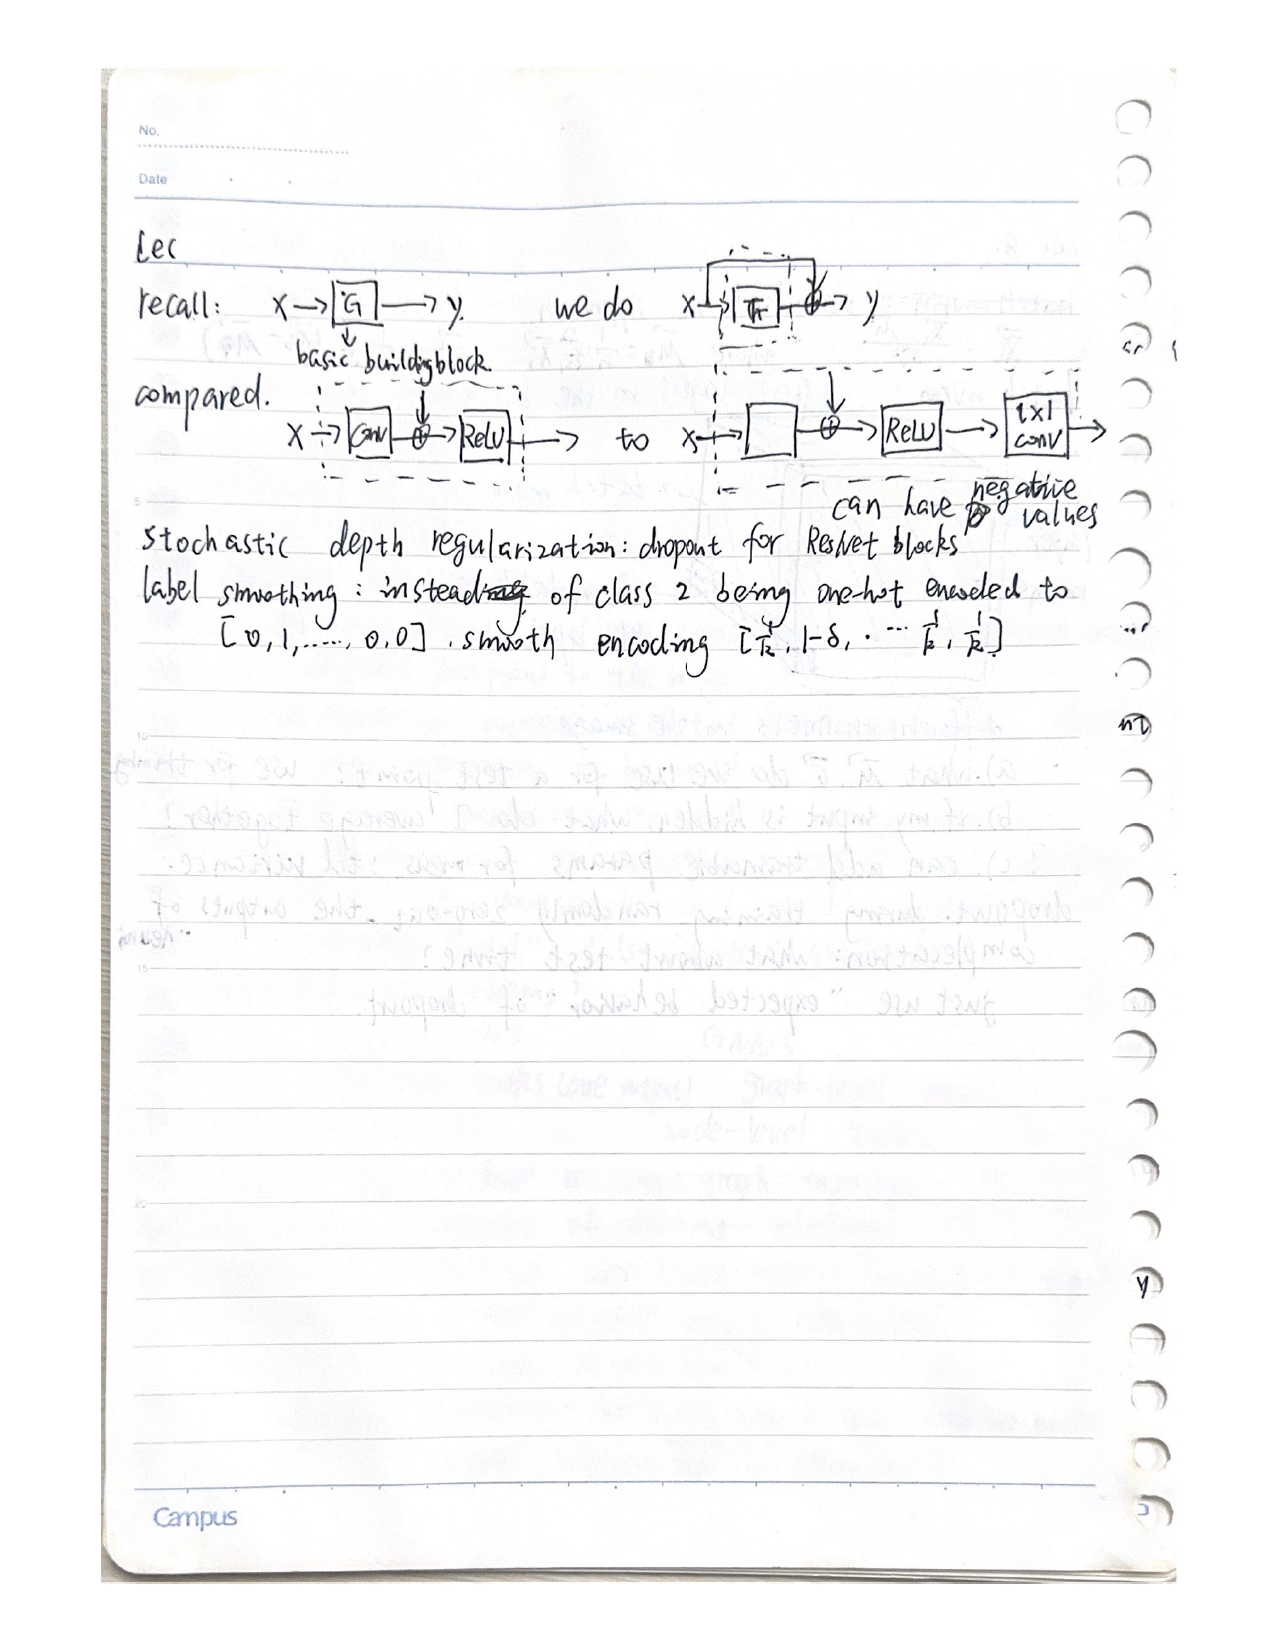 No.
Date
Lec
recall: X → G → y. we do X → → y
basic building block.
compared.
X → Conv → ⊕ → ReLU → to X → → ⊕ → ReLU → 1x1 conv →
can have negative values
stochastic depth regularization: dropout for ResNet blocks
label smoothing: instead of class 2 being one-hot encoded to
[0, 1, ....., 0, 0] . smooth encoding [ , 1-δ, . ... 1/k, 1/k]
Campus